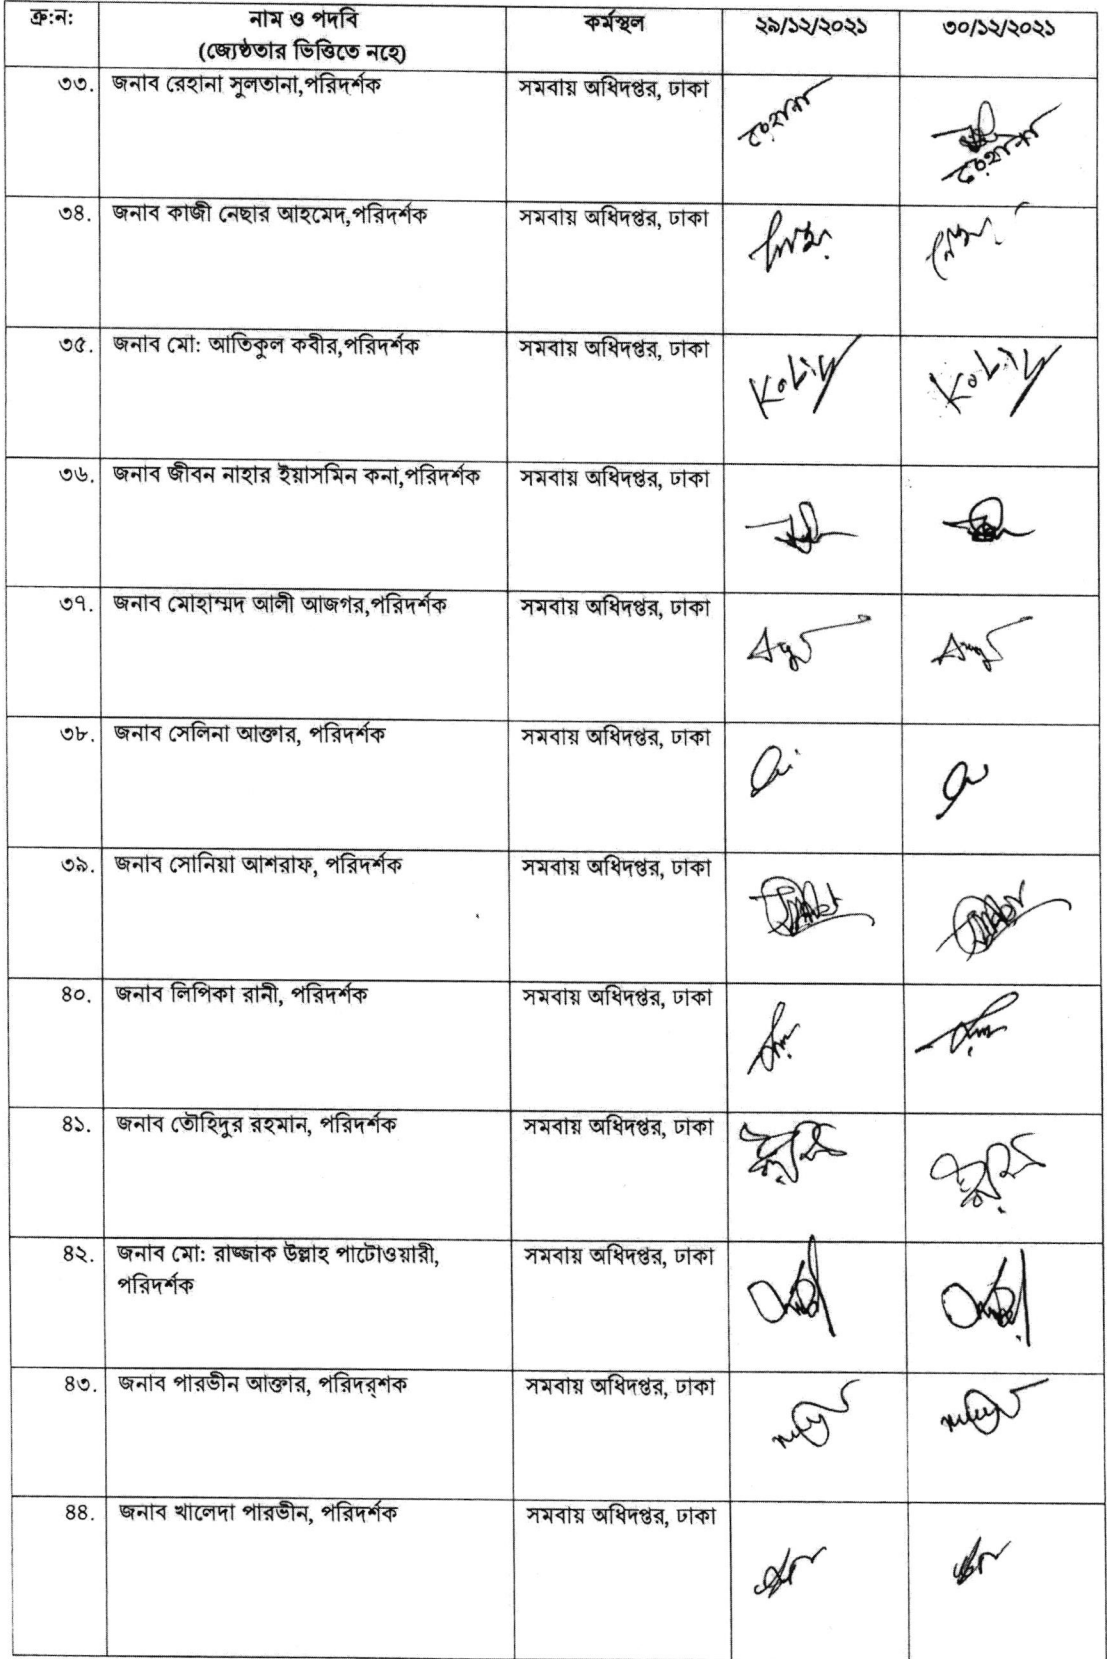 ক্র:ন: নাম ও পদবি কর্মস্থল ২৯/১২/২০২১ ৩০/১২/২০২১
(জ্যেষ্ঠতার ভিত্তিতে নহে)
৩৩. জনাব রেহানা সুলতানা,পরিদর্শক সমবায় অধিদপ্তর, ঢাকা রেহানা রেহানা
৩৪. জনাব কাজী নেছার আহমেদ,পরিদর্শক সমবায় অধিদপ্তর, ঢাকা
৩৫. জনাব মো: আতিকুল কবীর,পরিদর্শক সমবায় অধিদপ্তর, ঢাকা
৩৬. জনাব জীবন নাহার ইয়াসমিন কনা,পরিদর্শক সমবায় অধিদপ্তর, ঢাকা
৩৭. জনাব মোহাম্মদ আলী আজগর,পরিদর্শক সমবায় অধিদপ্তর, ঢাকা
৩৮. জনাব সেলিনা আক্তার, পরিদর্শক সমবায় অধিদপ্তর, ঢাকা
৩৯. জনাব সোনিয়া আশরাফ, পরিদর্শক সমবায় অধিদপ্তর, ঢাকা
৪০. জনাব লিপিকা রানী, পরিদর্শক সমবায় অধিদপ্তর, ঢাকা
৪১. জনাব তৌহিদুর রহমান, পরিদর্শক সমবায় অধিদপ্তর, ঢাকা
৪২. জনাব মো: রাজ্জাক উল্লাহ পাটোওয়ারী, সমবায় অধিদপ্তর, ঢাকা
পরিদর্শক
৪৩. জনাব পারভীন আক্তার, পরিদর্‌শক সমবায় অধিদপ্তর, ঢাকা
৪৪. জনাব খালেদা পারভীন, পরিদর্শক সমবায় অধিদপ্তর, ঢাকা